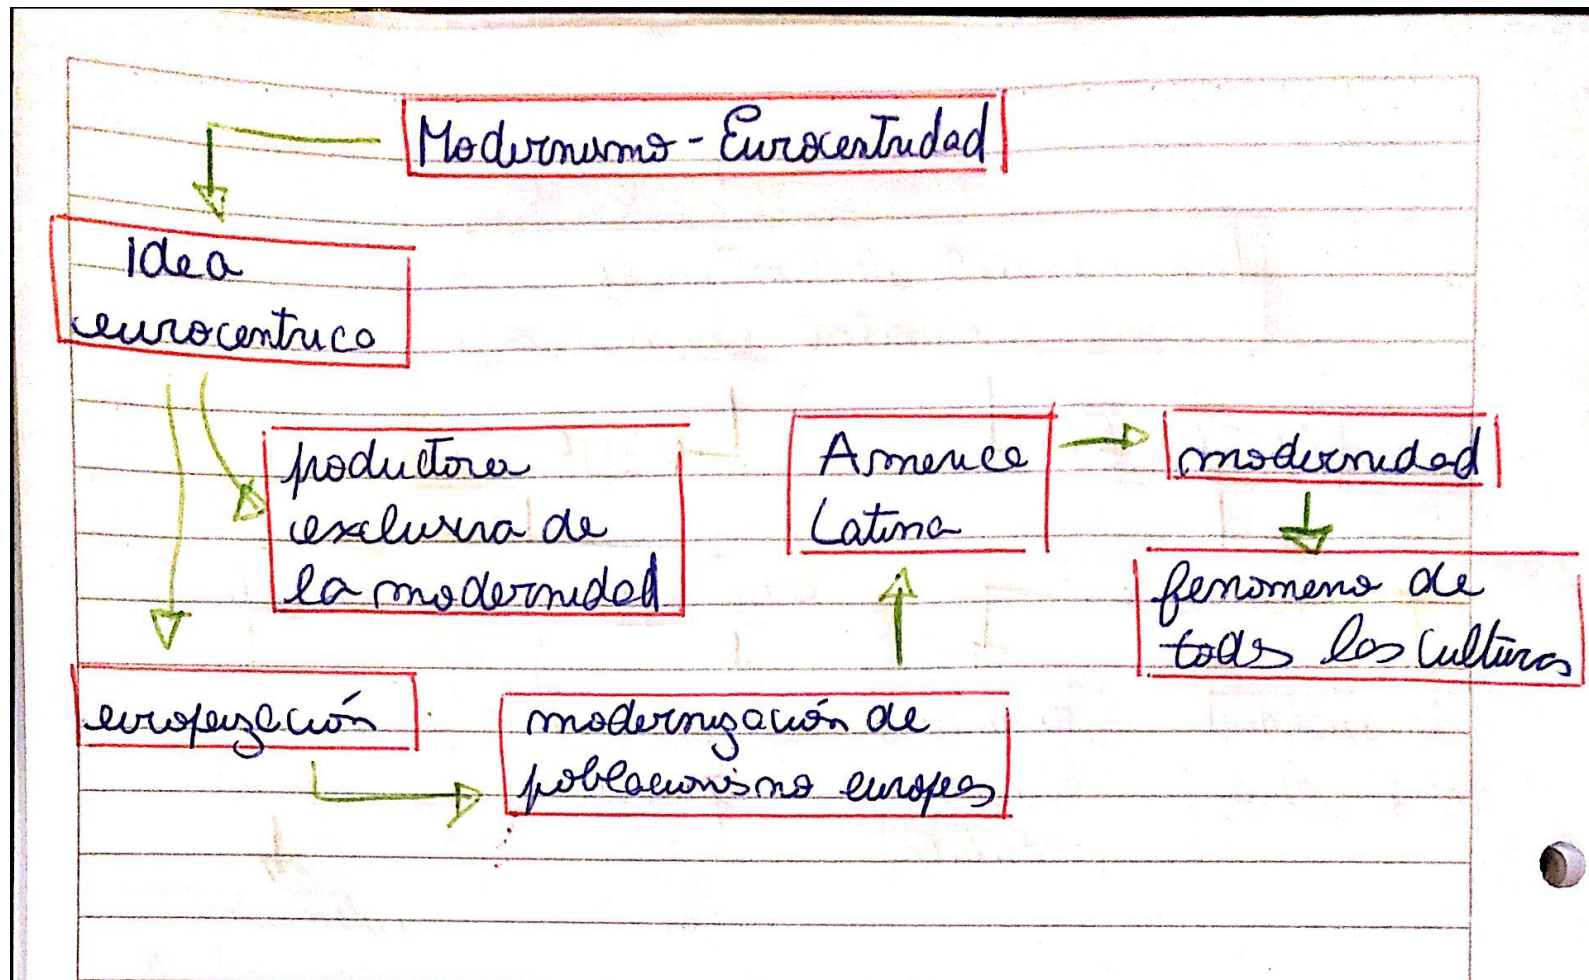 Modernismo - Eurocentridad
Idea
eurocentrica
productora
exclusiva de
la modernidad
America
Latina
modernidad
fenomeno de
todas las culturas
europeización
modernización de
poblaciones no europeas